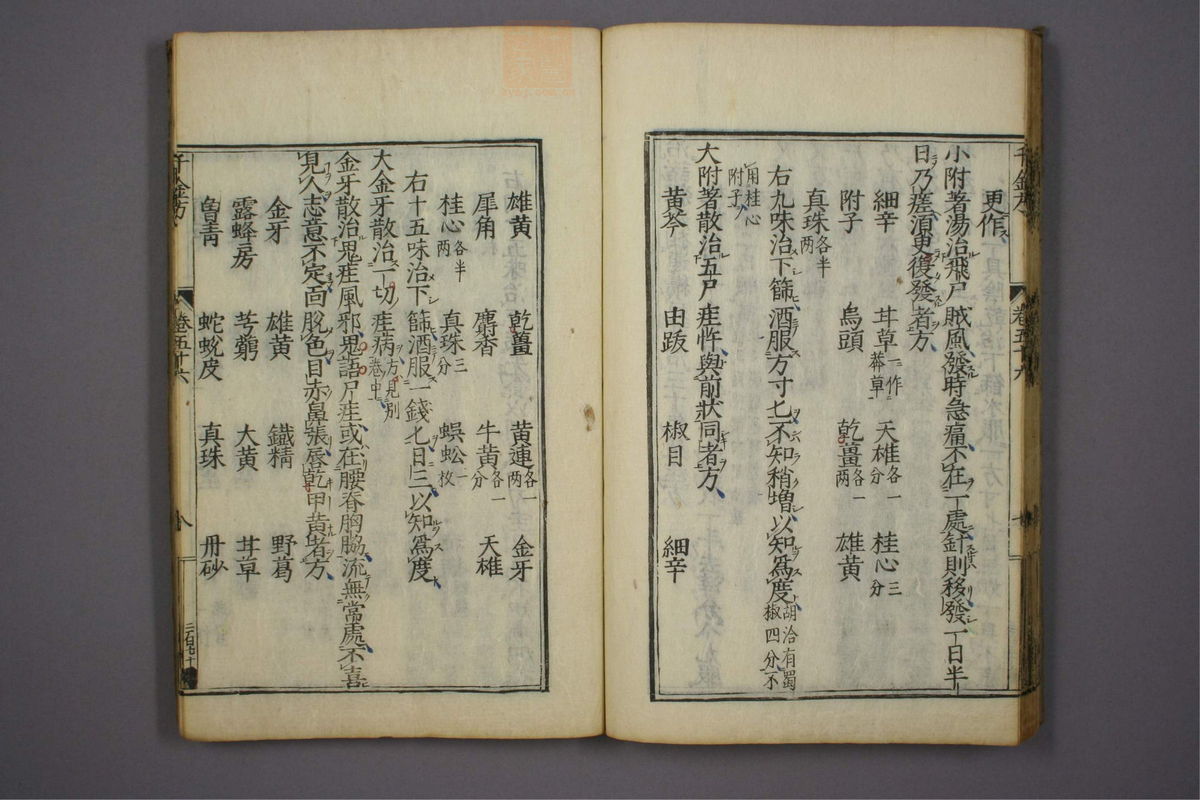 更作
小附著湯治飛尸賊風發時急痛不在一處針則移發一日半
日乃瘥須更復發者方
細辛 茸草一作莽草 天雄各一分 桂心三分
附子 烏頭 乾薑各一两 雄黃
真珠各半两
右九味治下篩酒服方寸匕不知稍增以知爲度胡洽有蜀椒四分不
用桂心附子
大附著散治五尸疰忤與前狀同者方
黃芩 由跋 椒目 細辛
千金方 卷五十六
雄黃 乾薑 黃連各一两 金牙
犀角 麝香 牛黃各一分 天雄
桂心各半两 真珠三分 蜈蚣一枚
右十五味治下篩酒服一錢匕日三以知爲度
大金牙散治一切疰病方見別卷中
金牙散治鬼疰風邪鬼語尸疰或在腰脊胸脇流無常處不喜
見人志意不定面脫色目赤鼻張唇乾甲黃者方
金牙 雄黃 鐵精 野葛
露蜂房 芎藭 大黃 茸草
曾青 蛇蛻皮 真珠 丹砂
千金方 卷五十六